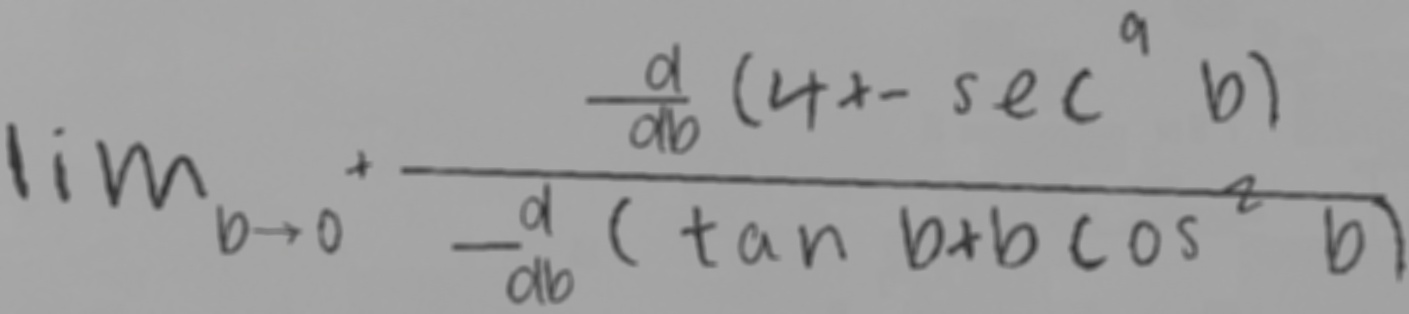 \lim_{b \to 0^+} \frac{\frac{d}{db}(4+-\sec^9 b)}{\frac{d}{db}(\tan b+b\cos^2 b)}